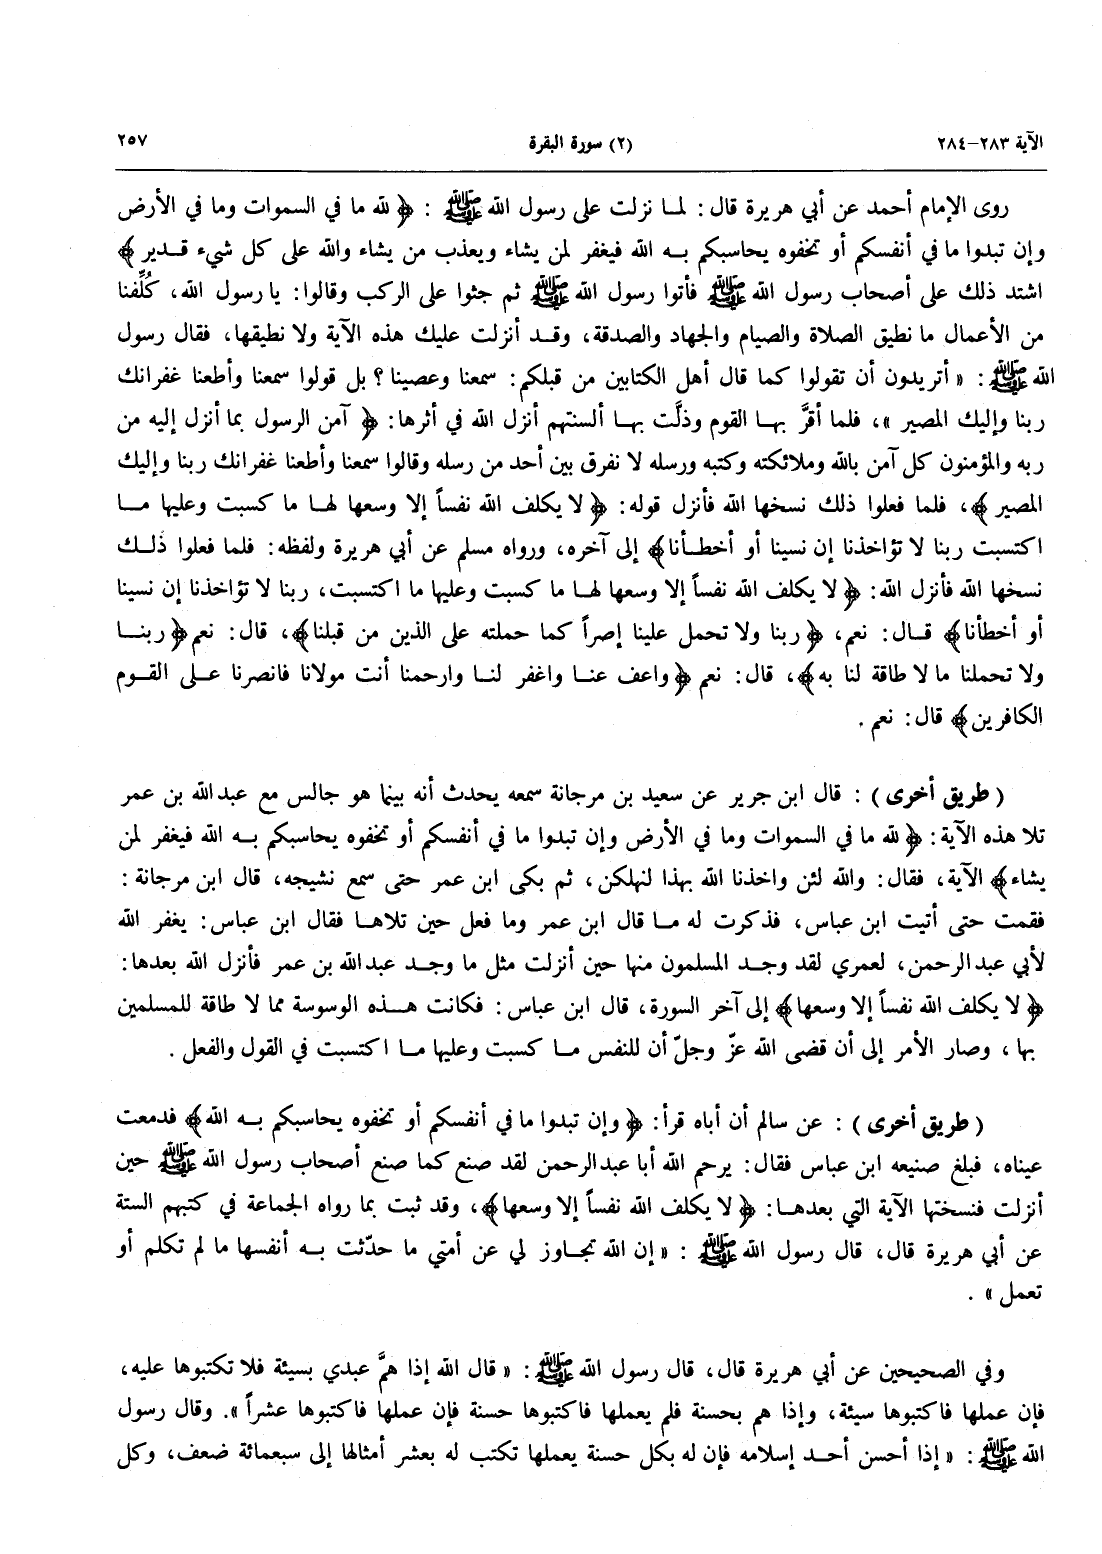 الآية ٢٨٣-٢٨٤ (٢) سورة البقرة ٢٥٧
روى الإمام أحمد عن أبي هريرة قال: لما نزلت على رسول الله ﷺ : ﴿ لله ما في السموات وما في الأرض
وإن تبدوا ما في أنفسكم أو تخفوه يحاسبكم به الله فيغفر لمن يشاء ويعذب من يشاء والله على كل شيء قدير ﴾
اشتد ذلك على أصحاب رسول الله ﷺ فأتوا رسول الله ﷺ ثم جثوا على الركب وقالوا: يا رسول الله، كُلِّفنا
من الأعمال ما نطيق الصلاة والصيام والجهاد والصدقة، وقد أنزلت عليك هذه الآية ولا نطيقها، فقال رسول
الله ﷺ : « أتريدون أن تقولوا كما قال أهل الكتابين من قبلكم: سمعنا وعصينا؟ بل قولوا سمعنا وأطعنا غفرانك
ربنا وإليك المصير »، فلما أقرَّ بها القوم وذلَّت بها ألسنتهم أنزل الله في أثرها: ﴿ آمن الرسول بما أنزل إليه من
ربه والمؤمنون كل آمن بالله وملائكته وكتبه ورسله لا نفرق بين أحد من رسله وقالوا سمعنا وأطعنا غفرانك ربنا وإليك
المصير ﴾، فلما فعلوا ذلك نسخها الله فأنزل قوله: ﴿ لا يكلف الله نفساً إلا وسعها لها ما كسبت وعليها ما
اكتسبت ربنا لا تؤاخذنا إن نسينا أو أخطأنا﴾ إلى آخره، ورواه مسلم عن أبي هريرة ولفظه: فلما فعلوا ذلك
نسخها الله فأنزل الله: ﴿ لا يكلف الله نفساً إلا وسعها لها ما كسبت وعليها ما اكتسبت، ربنا لا تؤاخذنا إن نسينا
أو أخطأنا﴾ قال: نعم، ﴿ربنا ولا تحمل علينا إصراً كما حملته على الذين من قبلنا﴾، قال: نعم ﴿ربنا
ولا تحملنا ما لا طاقة لنا به﴾، قال: نعم ﴿واعف عنا واغفر لنا وارحمنا أنت مولانا فانصرنا على القوم
الكافرين﴾ قال: نعم .
( طريق أخرى ) : قال ابن جرير عن سعيد بن مرجانة سمعه يحدث أنه بينما هو جالس مع عبد الله بن عمر
تلا هذه الآية: ﴿ لله ما في السموات وما في الأرض وإن تبدوا ما في أنفسكم أو تخفوه يحاسبكم به الله فيغفر لمن
يشاء﴾ الآية، فقال: والله لئن واخذنا الله بهذا لنهلكن، ثم بكى ابن عمر حتى سمع نشيجه، قال ابن مرجانة :
فقمت حتى أتيت ابن عباس، فذكرت له ما قال ابن عمر وما فعل حين تلاها فقال ابن عباس: يغفر الله
لأبي عبد الرحمن، لعمري لقد وجد المسلمون منها حين أنزلت مثل ما وجد عبد الله بن عمر فأنزل الله بعدها:
﴿ لا يكلف الله نفساً إلا وسعها﴾ إلى آخر السورة، قال ابن عباس: فكانت هذه الوسوسة مما لا طاقة للمسلمين
بها، وصار الأمر إلى أن قضى الله عزّ وجلّ أن للنفس ما كسبت وعليها ما اكتسبت في القول والفعل .
( طريق أخرى ) : عن سالم أن أباه قرأ: ﴿ وإن تبدوا ما في أنفسكم أو تخفوه يحاسبكم به الله﴾ فدمعت
عيناه، فبلغ صنيعه ابن عباس فقال: يرحم الله أبا عبد الرحمن لقد صنع كما صنع أصحاب رسول الله ﷺ حين
أنزلت فنسختها الآية التي بعدها: ﴿ لا يكلف الله نفساً إلا وسعها﴾، وقد ثبت بما رواه الجماعة في كتبهم الستة
عن أبي هريرة قال، قال رسول الله ﷺ : « إن الله تجاوز لي عن أمتي ما حدّثت به أنفسها ما لم تكلم أو
تعمل » .
وفي الصحيحين عن أبي هريرة قال، قال رسول الله ﷺ : « قال الله إذا همَّ عبدي بسيئة فلا تكتبوها عليه،
فإن عملها فاكتبوها سيئة، وإذا هم بحسنة فلم يعملها فاكتبوها حسنة فإن عملها فاكتبوها عشراً ». وقال رسول
الله ﷺ : « إذا أحسن أحد إسلامه فإن له بكل حسنة يعملها تكتب له بعشر أمثالها إلى سبعمائة ضعف، وكل